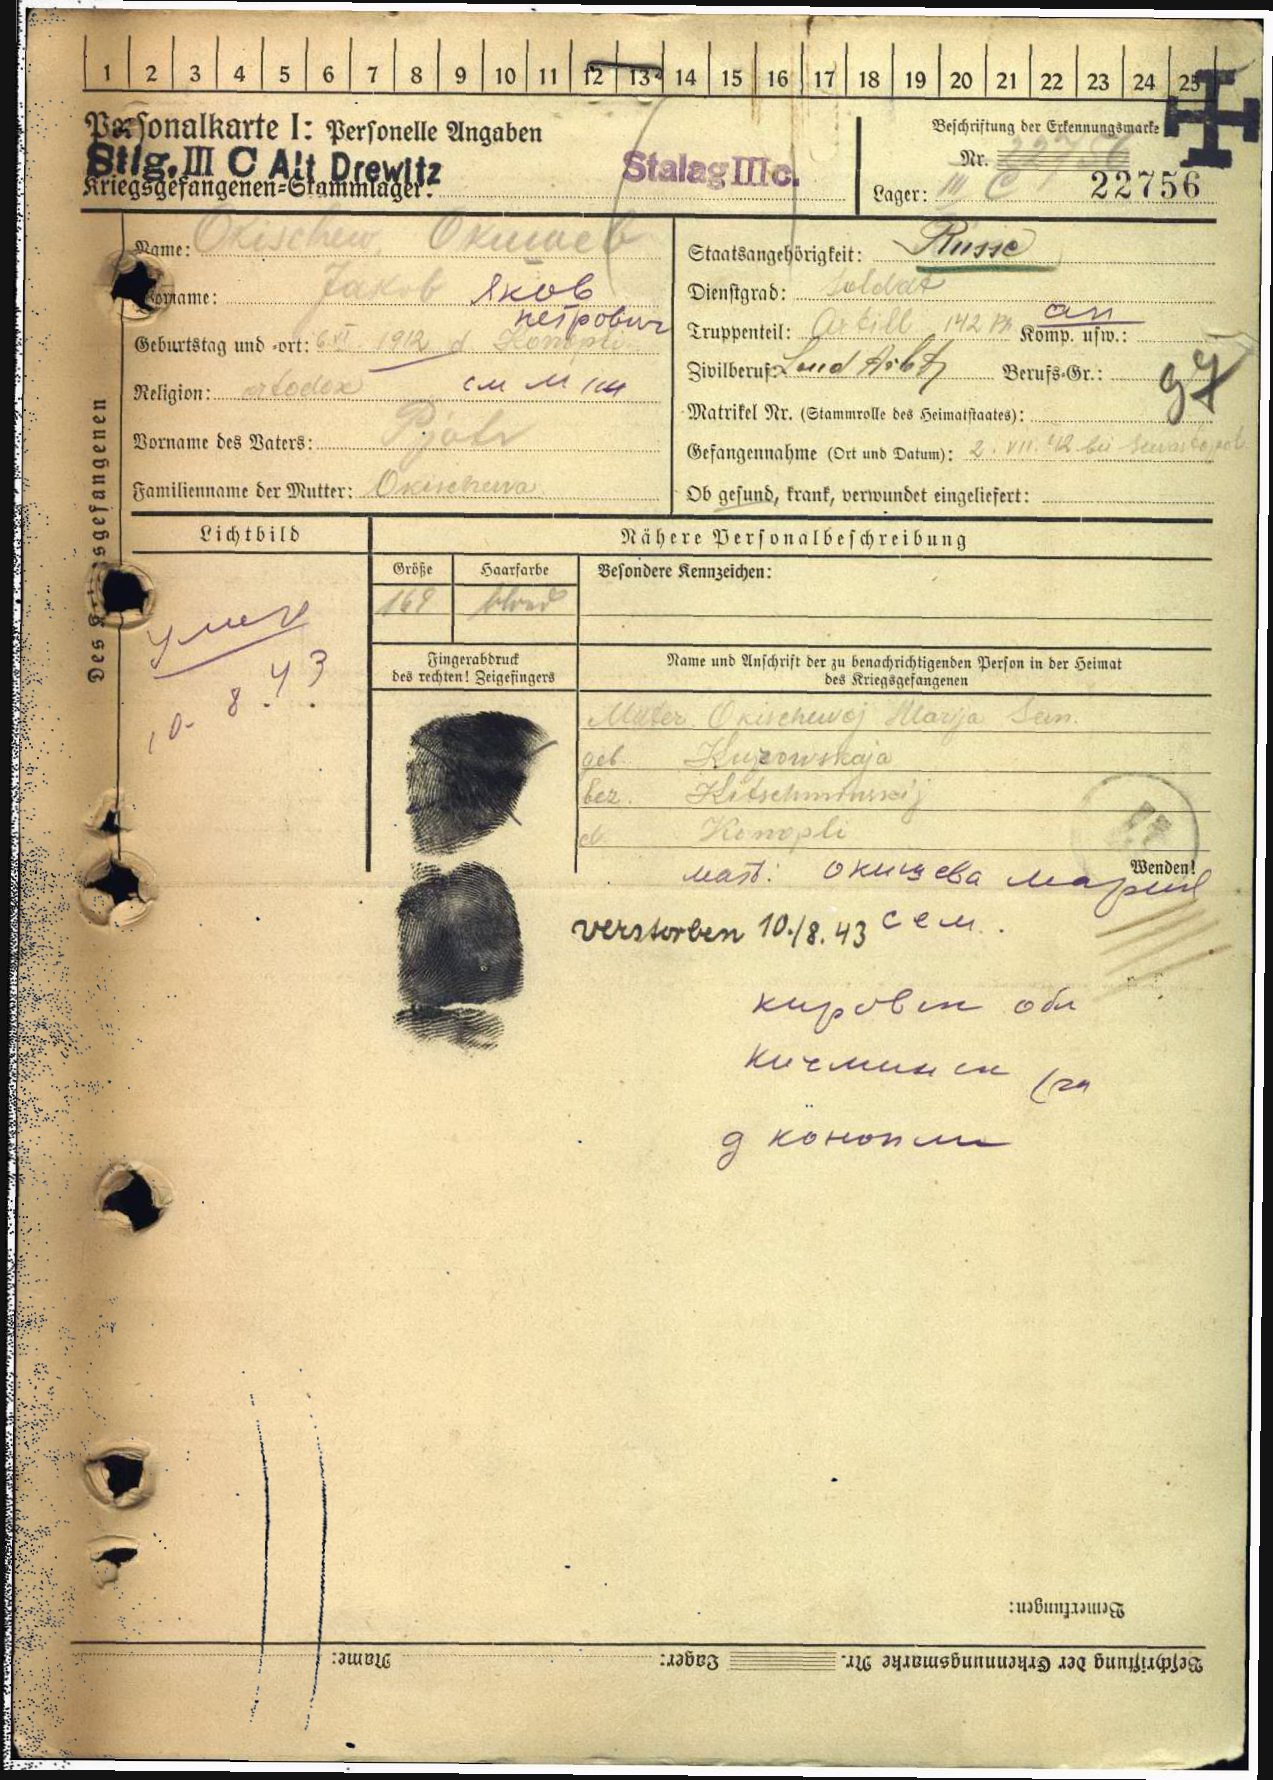 1 2 3 4 5 6 7 8 9 10 11 12 13 14 15 16 17 18 19 20 21 22 23 24 25
Personalkarte I: Personelle Angaben
Beschriftung der Erkennungsmarke
Stlg. III C Alt Drewitz
Stalag III c.
Nr. 22756
Kriegsgefangenen-Stammlager:
Lager: III C 22756
Des Kriegsgefangenen
Name: Okischew Окишев
Vorname: Jakob Яков
Петрович
Geburtstag und -ort: 6 XI 1912 d Konopli
Religion: ortodox
Vorname des Vaters: Pjotr
Familienname der Mutter: Okischewa
Staatsangehörigkeit: Russe
Dienstgrad: Soldat
Truppenteil: Artill 142 Komp. usw.: ап
Zivilberuf: Land Arbt Berufs-Gr.:
97
Matrikel Nr. (Stammrolle des Heimatstaates):
Gefangennahme (Ort und Datum): 2. VII. 42 bei Sewastopol
Ob gesund, krank, verwundet eingeliefert:
Lichtbild
Nähere Personalbeschreibung
Größe Haarfarbe Besondere Kennzeichen:
169 blond
умер
10. 8. 43
Fingerabdruck
des rechten! Zeigefingers
Name und Anschrift der zu benachrichtigenden Person in der Heimat
des Kriegsgefangenen
Mutter Okischewoj Marija Sem.
geb. Kuzowskaja
bez. Kitschminskij
d Konopli
Wenden!
мать: Окишева Мария
сем.
verstorben 10./8. 43
кировск обл
кичминск
д конопли
Bemerkungen:
Beschriftung der Erkennungsmarke Nr. Lager: Name: